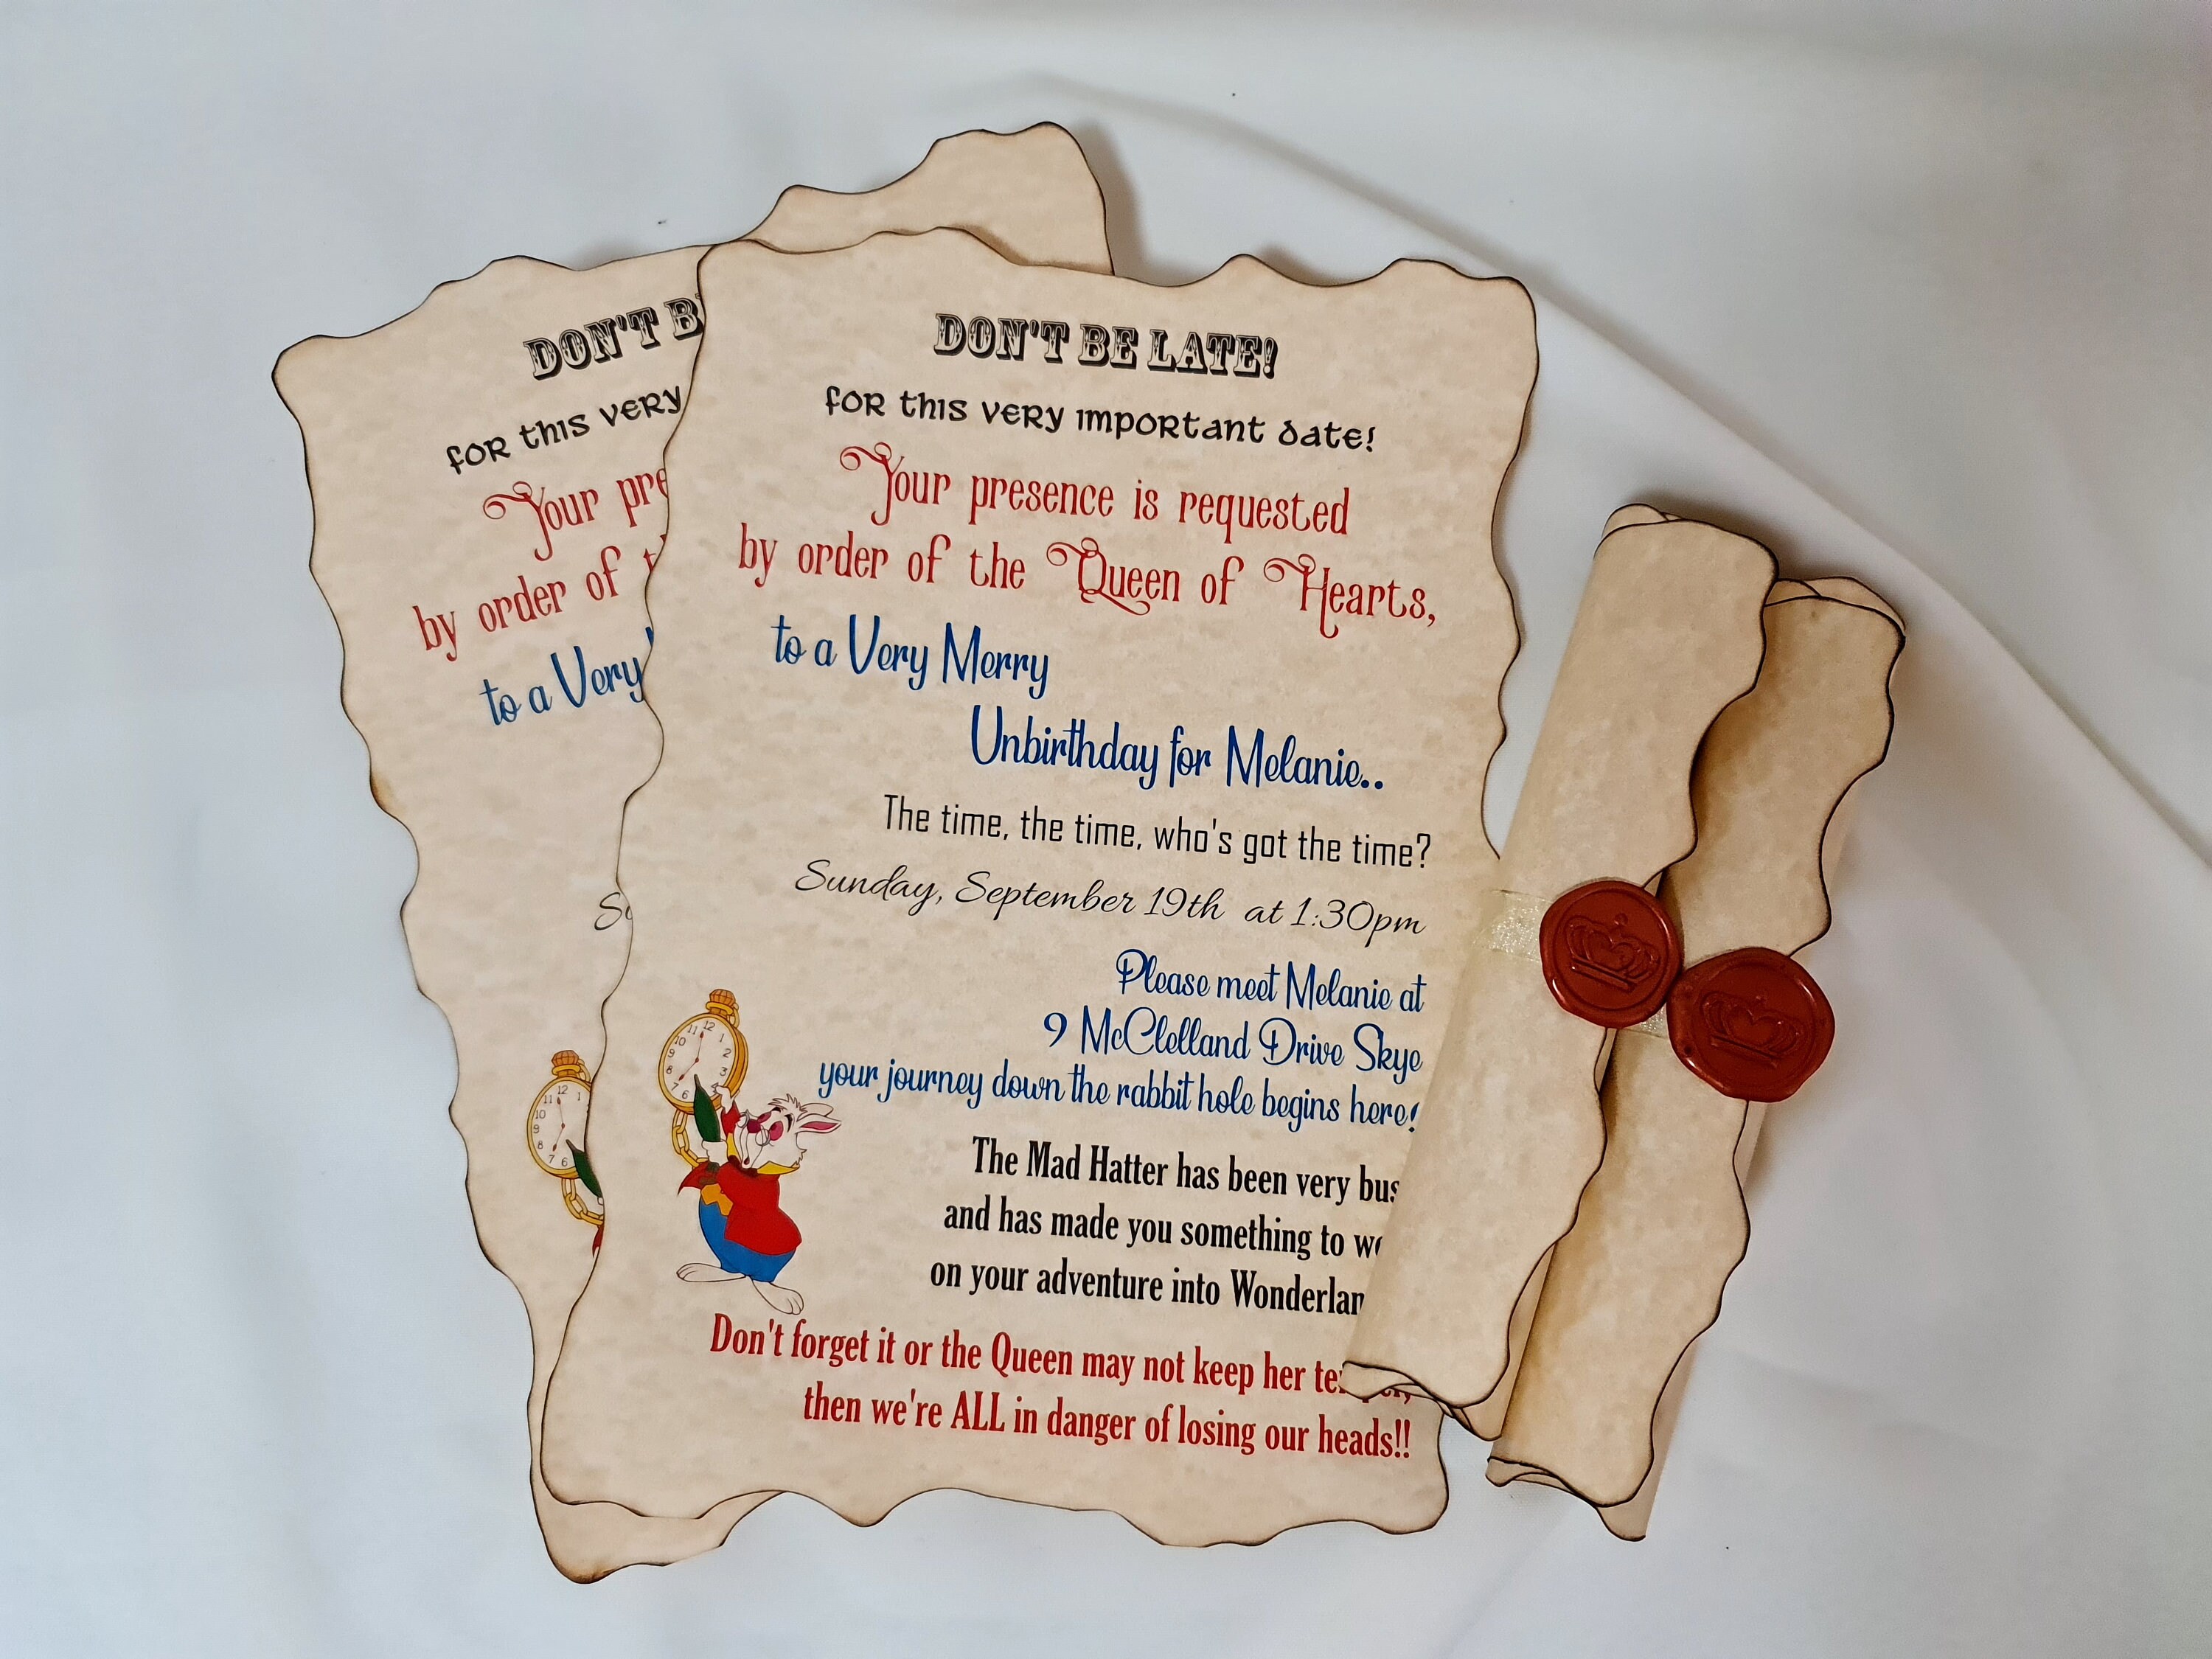 DON'T BE LATE!
for this very important date!
Your presence is requested
by order of the Queen of Hearts,
to a Very Merry
Unbirthday for Melanie..
The time, the time, who's got the time?
Sunday, September 19th at 1:30pm
Please meet Melanie at
9 McClelland Drive Skye
your journey down the rabbit hole begins here!
The Mad Hatter has been very
and has made you something to
on your adventure into
Don't forget it or the Queen may not keep her
then we're ALL in danger of losing our heads!!
DON'T
for this very
Your
by order of
to a Very
11 12 1
10 2
9 3
8 4
7 6
11 12 1
10
9
8
7 6